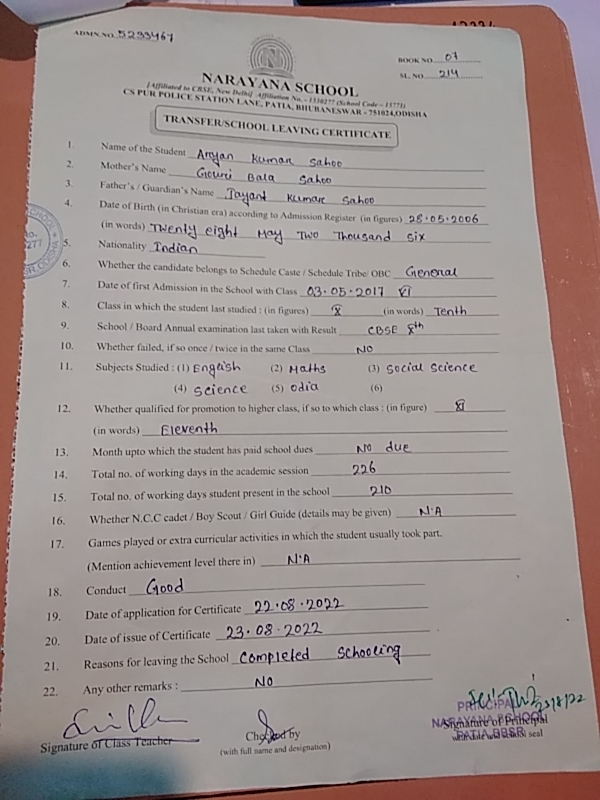 ADMN.NO. 5233467
BOOK NO. 07
SL. NO. 214
NARAYANA SCHOOL
[Affiliated to CBSE, New Delhi] Affiliation No. - 1530277 (School Code - 15771)
CS PUR POLICE STATION LANE, PATIA, BHUBANESWAR - 751024,ODISHA
TRANSFER/SCHOOL LEAVING CERTIFICATE
1. Name of the Student Aryan Kumar Sahoo
2. Mother's Name Gouri Bala Sahoo
3. Father's / Guardian's Name Jayant Kumar Sahoo
4. Date of Birth (in Christian era) according to Admission Register (in figures) 28.05.2006
(in words) Twenty eight May Two Thousand Six
5. Nationality Indian
6. Whether the candidate belongs to Schedule Caste / Schedule Tribe/ OBC General
7. Date of first Admission in the School with Class 03.05.2017 VI
8. Class in which the student last studied : (in figures) X (in words) Tenth
9. School / Board Annual examination last taken with Result CBSE
10. Whether failed, if so once / twice in the same Class NO
11. Subjects Studied : (1) English (2) Maths (3) Social Science
(4) Science (5) Odia (6)
12. Whether qualified for promotion to higher class, if so to which class : (in figure) XI
(in words) Eleventh
13. Month upto which the student has paid school dues No due
14. Total no. of working days in the academic session 226
15. Total no. of working days student present in the school 210
16. Whether N.C.C cadet / Boy Scout / Girl Guide (details may be given) N.A
17. Games played or extra curricular activities in which the student usually took part.
(Mention achievement level there in) N.A
18. Conduct Good
19. Date of application for Certificate 22.08.2022
20. Date of issue of Certificate 23.08.2022
21. Reasons for leaving the School Completed Schooling
22. Any other remarks : NO
23/8/22
PRINCIPAL
NARAYANA SCHOOL
PATIA, BBSR
Signature of Class Teacher
Checked by
(with full name and designation)
Signature of Principal
seal